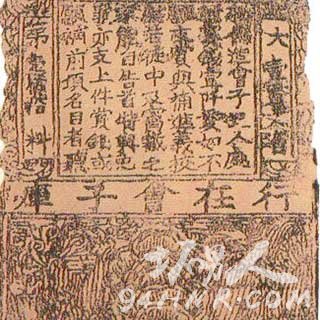 大壹貫文省
敕偽造會子犯人處
斬賞錢壹阡貫如不
願支賞與補進義校
尉若徒中及窩藏之
家能自告首特與免
罪亦支上件賞錢或
願補前項名目者聽
第壹百拾料
行在會子庫
94HNR.COM